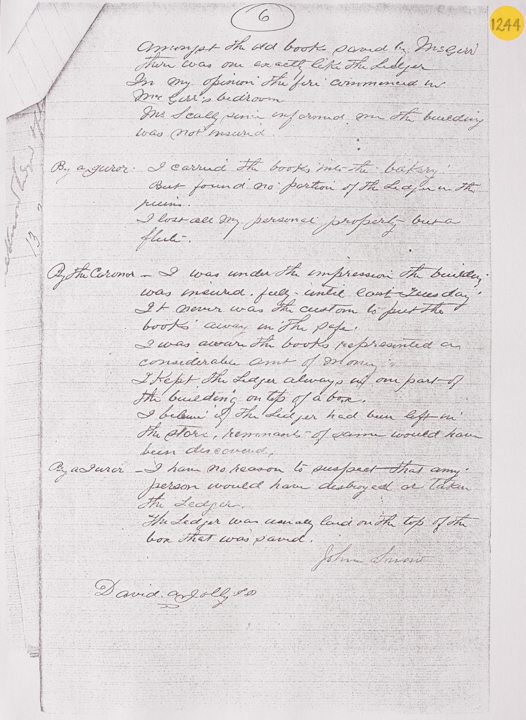 6
1244
Amongst the old books saved by McGirr
there was one exactly like the Ledger
In my opinion the fire commenced in
Mrs Girr's bedroom
Mr Scally since informed me the building
was not insured.
By a Juror - I carried the books into the bakery
But found no portion of the Ledger in the
ruins.
I lost all my personal property but a
flute.
By the Coroner - I was under the impression the building
was insured fully until last Tuesday
It never was the custom to put the
books away in the safe.
I was aware the books represented a
considerable amt of money
I kept the Ledger always in one part of
the building on top of a box.
I believe if the Ledger had been left in
the store, remnants of same would have
been discovered.
By a Juror - I have no reason to suspect that any
person would have destroyed or taken
the Ledger.
The Ledger was usually laid on the top of the
box that was saved.
John Snow
David Jolly